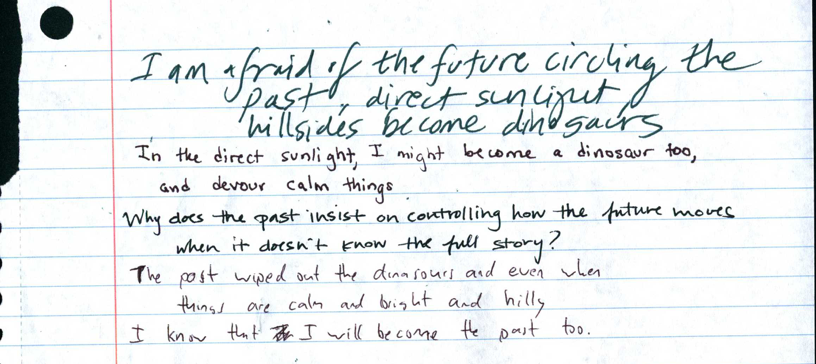 I am afraid of the future circling the
past, direct sunlight
hillsides become dinosaurs
In the direct sunlight, I might become a dinosaur too,
and devour calm things
Why does the past insist on controlling how the future moves
when it doesn't know the full story?
The past wiped out the dinasours and even when
things are calm and bright and hilly
I know that I will become the past too.